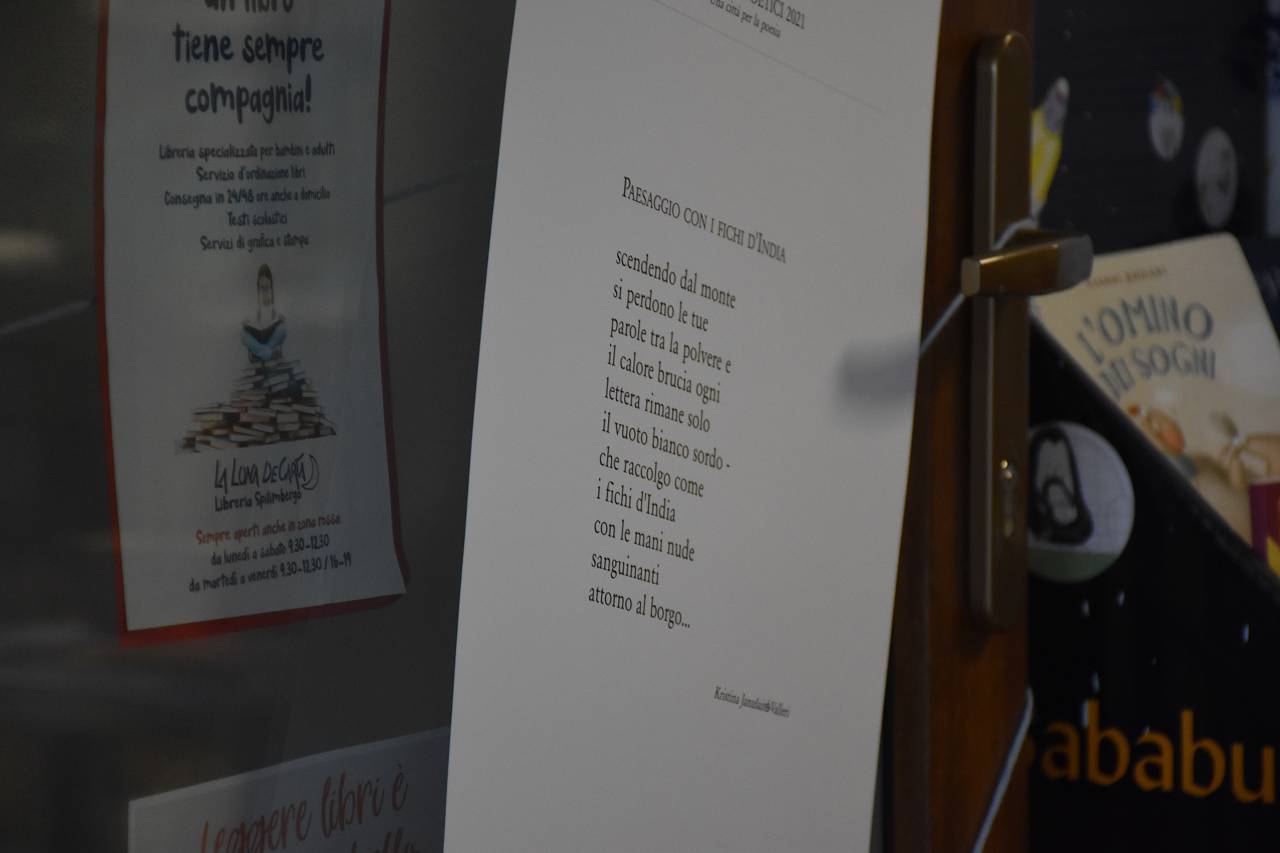 un libro
tiene sempre
compagnia!
Libreria specializzata per bambini e adulti
Servizio d'ordinazione libri
Consegna in 24/48 ore anche a domicilio
Testi scolastici
Servizi di grafica e stampa
LA LUNA DE CARTA
Libreria Spilimbergo
Sempre aperti anche in zona rossa
da lunedì a sabato 9.30-12.30
da martedì a venerdì 9.30-12.30 / 16-19
Leggere libri è
2021
Una città per la poesia
PAESAGGIO CON I FICHI D'INDIA
scendendo dal monte
si perdono le tue
parole tra la polvere e
il calore brucia ogni
lettera rimane solo
il vuoto bianco sordo -
che raccolgo come
i fichi d'India
con le mani nude
sanguinanti
attorno al borgo...
Kristina
L'OMINO
DEI SOGNI
ababu